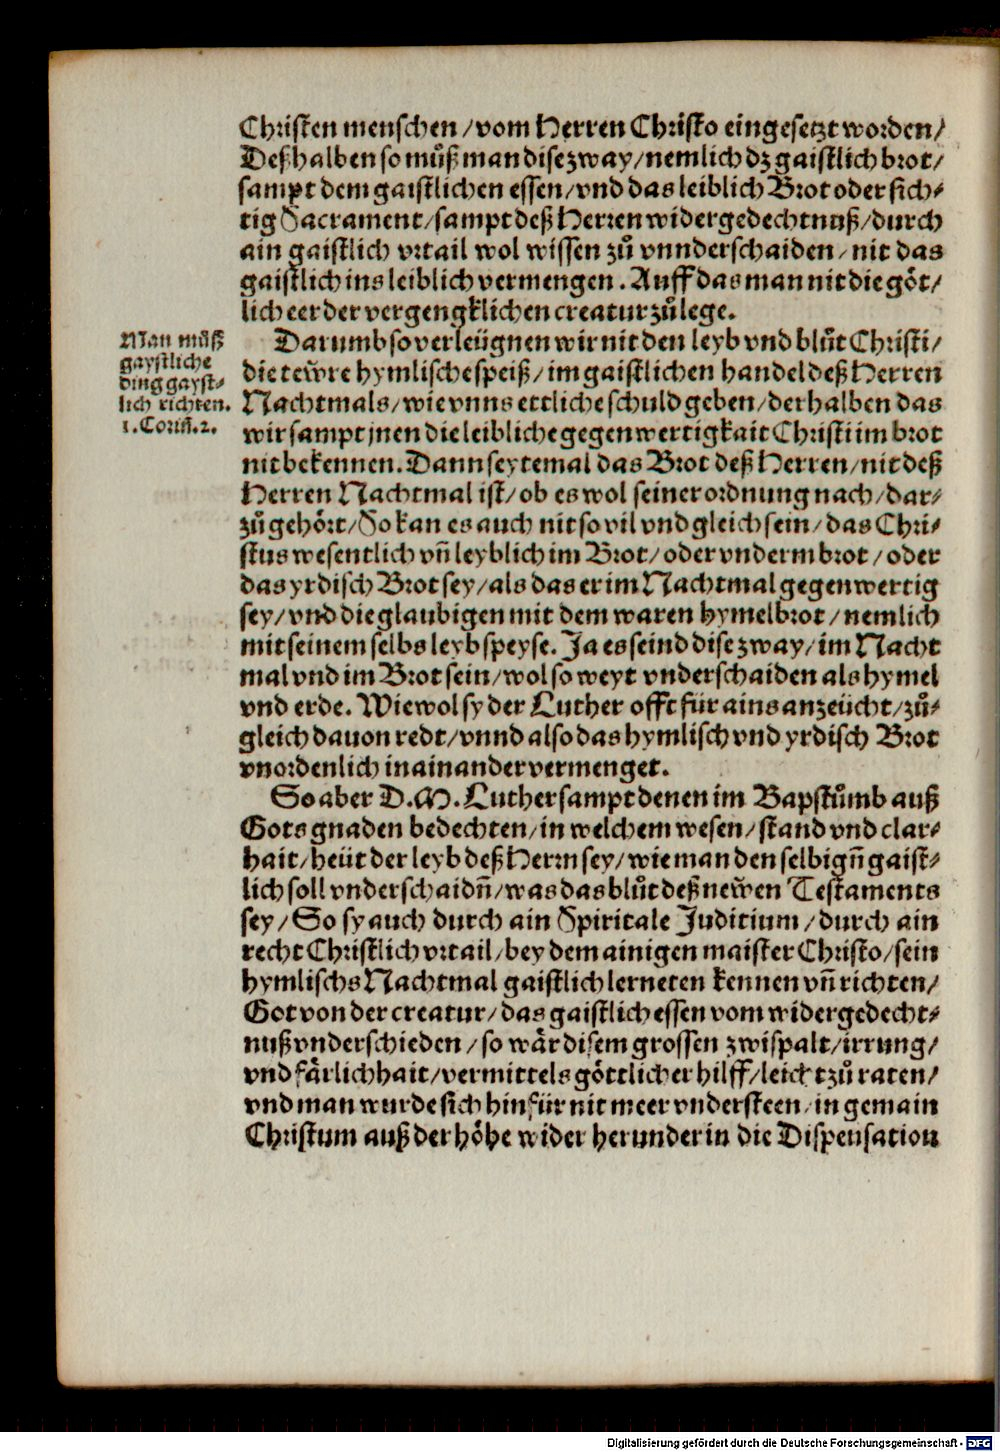 Christen menschen / vom Herren Christo eingesetzt worden /
Deßhalben so muͦß man dise zway / nemlich dz gaistlich brot /
sampt dem gaistlichen essen / vnd das leiblich Brot oder sich⸗
tig Sacrament / sampt deß Herren widergedechtnuß / durch
ain gaistlich vrtail wol wissen zuͦ vnnderschaiden / nit das
gaistlich ins leiblich vermengen. Auff das man nit die goͤt /
lich eer der vergengklichen creatur zuͦ lege.
Man muͦß
gaystliche
ding gayst⸗
lich richten.
1. Corin̄. 2.
Darumb so verleügnen wir nit den leyb vnd bluͦt Christi /
die teẅre hymlische speiß / im gaistlichen handel deß Herren
Nachtmals / wie vnns ettliche schuld geben / derhalben das
wir sampt jnen die leibliche gegenwertigkait Christi im brot
nit bekennen. Dann seytemal das Brot deß Herren / nit deß
Herren Nachtmal ist / ob es wol seiner ordnung nach / dar⸗
zuͦ gehoͤrt / So kan es auch nit so vil vnd gleich sein / das Chri⸗
stus wesentlich vn̄ leyblich im Brot / oder vnderm brot / oder
das yrdisch Brot sey / als das er im Nachtmal gegenwertig
sey / vnd die glaubigen mit dem waren hymelbrot / nemlich
mit seinem selbs leyb speyse. Ja es seind dise zway / im Nacht
mal vnd im Brot sein / wol so weyt vnderschaiden als hymel
vnd erde. Wiewol sy der Luther offt für ains anzeücht / zuͦ⸗
gleich dauon redt / vnnd also das hymlisch vnd yrdisch Brot
vnordenlich in ainander vermenget.
So aber D. M. Luther sampt denen im Bapstuͦmb auß
Gots gnaden bedechten / in welchem wesen / stand vnd clar⸗
hait / heüt der leyb deß Herrn sey / wie man den selbign̄ gaist⸗
lich soll vnderschaidn̄ / was das bluͦt deß neẅen Testaments
sey / So sy auch durch ain Spiritale Juditium / durch ain
recht Christlich vrtail / bey dem ainigen maister Christo / sein
hymlischs Nachtmal gaistlich lerneten kennen vn̄ richten /
Got von der creatur / das gaistlich essen vom widergedecht⸗
nuß vnderschieden / so waͤr disem grossen zwispalt / irrung /
vnd faͤrlichhait / vermittels goͤttlicher hilff / leicht zuͦ raten /
vnd man wurde sich hinfür nit meer vndersteen / in gemain
Christum auß der hoͤhe wider herunder in die Dispensation
Digitalisierung gefördert durch die Deutsche Forschungsgemeinschaft - DFG